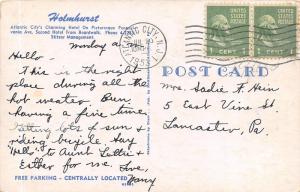 Holmhurst
Atlantic City's Charming Hotel On Picturesque Pennsyl-
vania Ave. Second Hotel from Boardwalk. Phone
Stitzer Management
ATLANTIC CITY, N.J.
1953
1 CENT 1
1 CENT 1
Monday
Hello,
This is the right
place during all the
hot weather. Been
having a fine time,
Getting lots of sun &
riding bicycle. Say
"Hello" to Aunt Lottie &
Esther for me. Love,
Nancy
FREE PARKING - CENTRALLY LOCATED
POST CARD
Mrs. Sadie F. Hein
5 East Vine St
Lancaster, Pa.